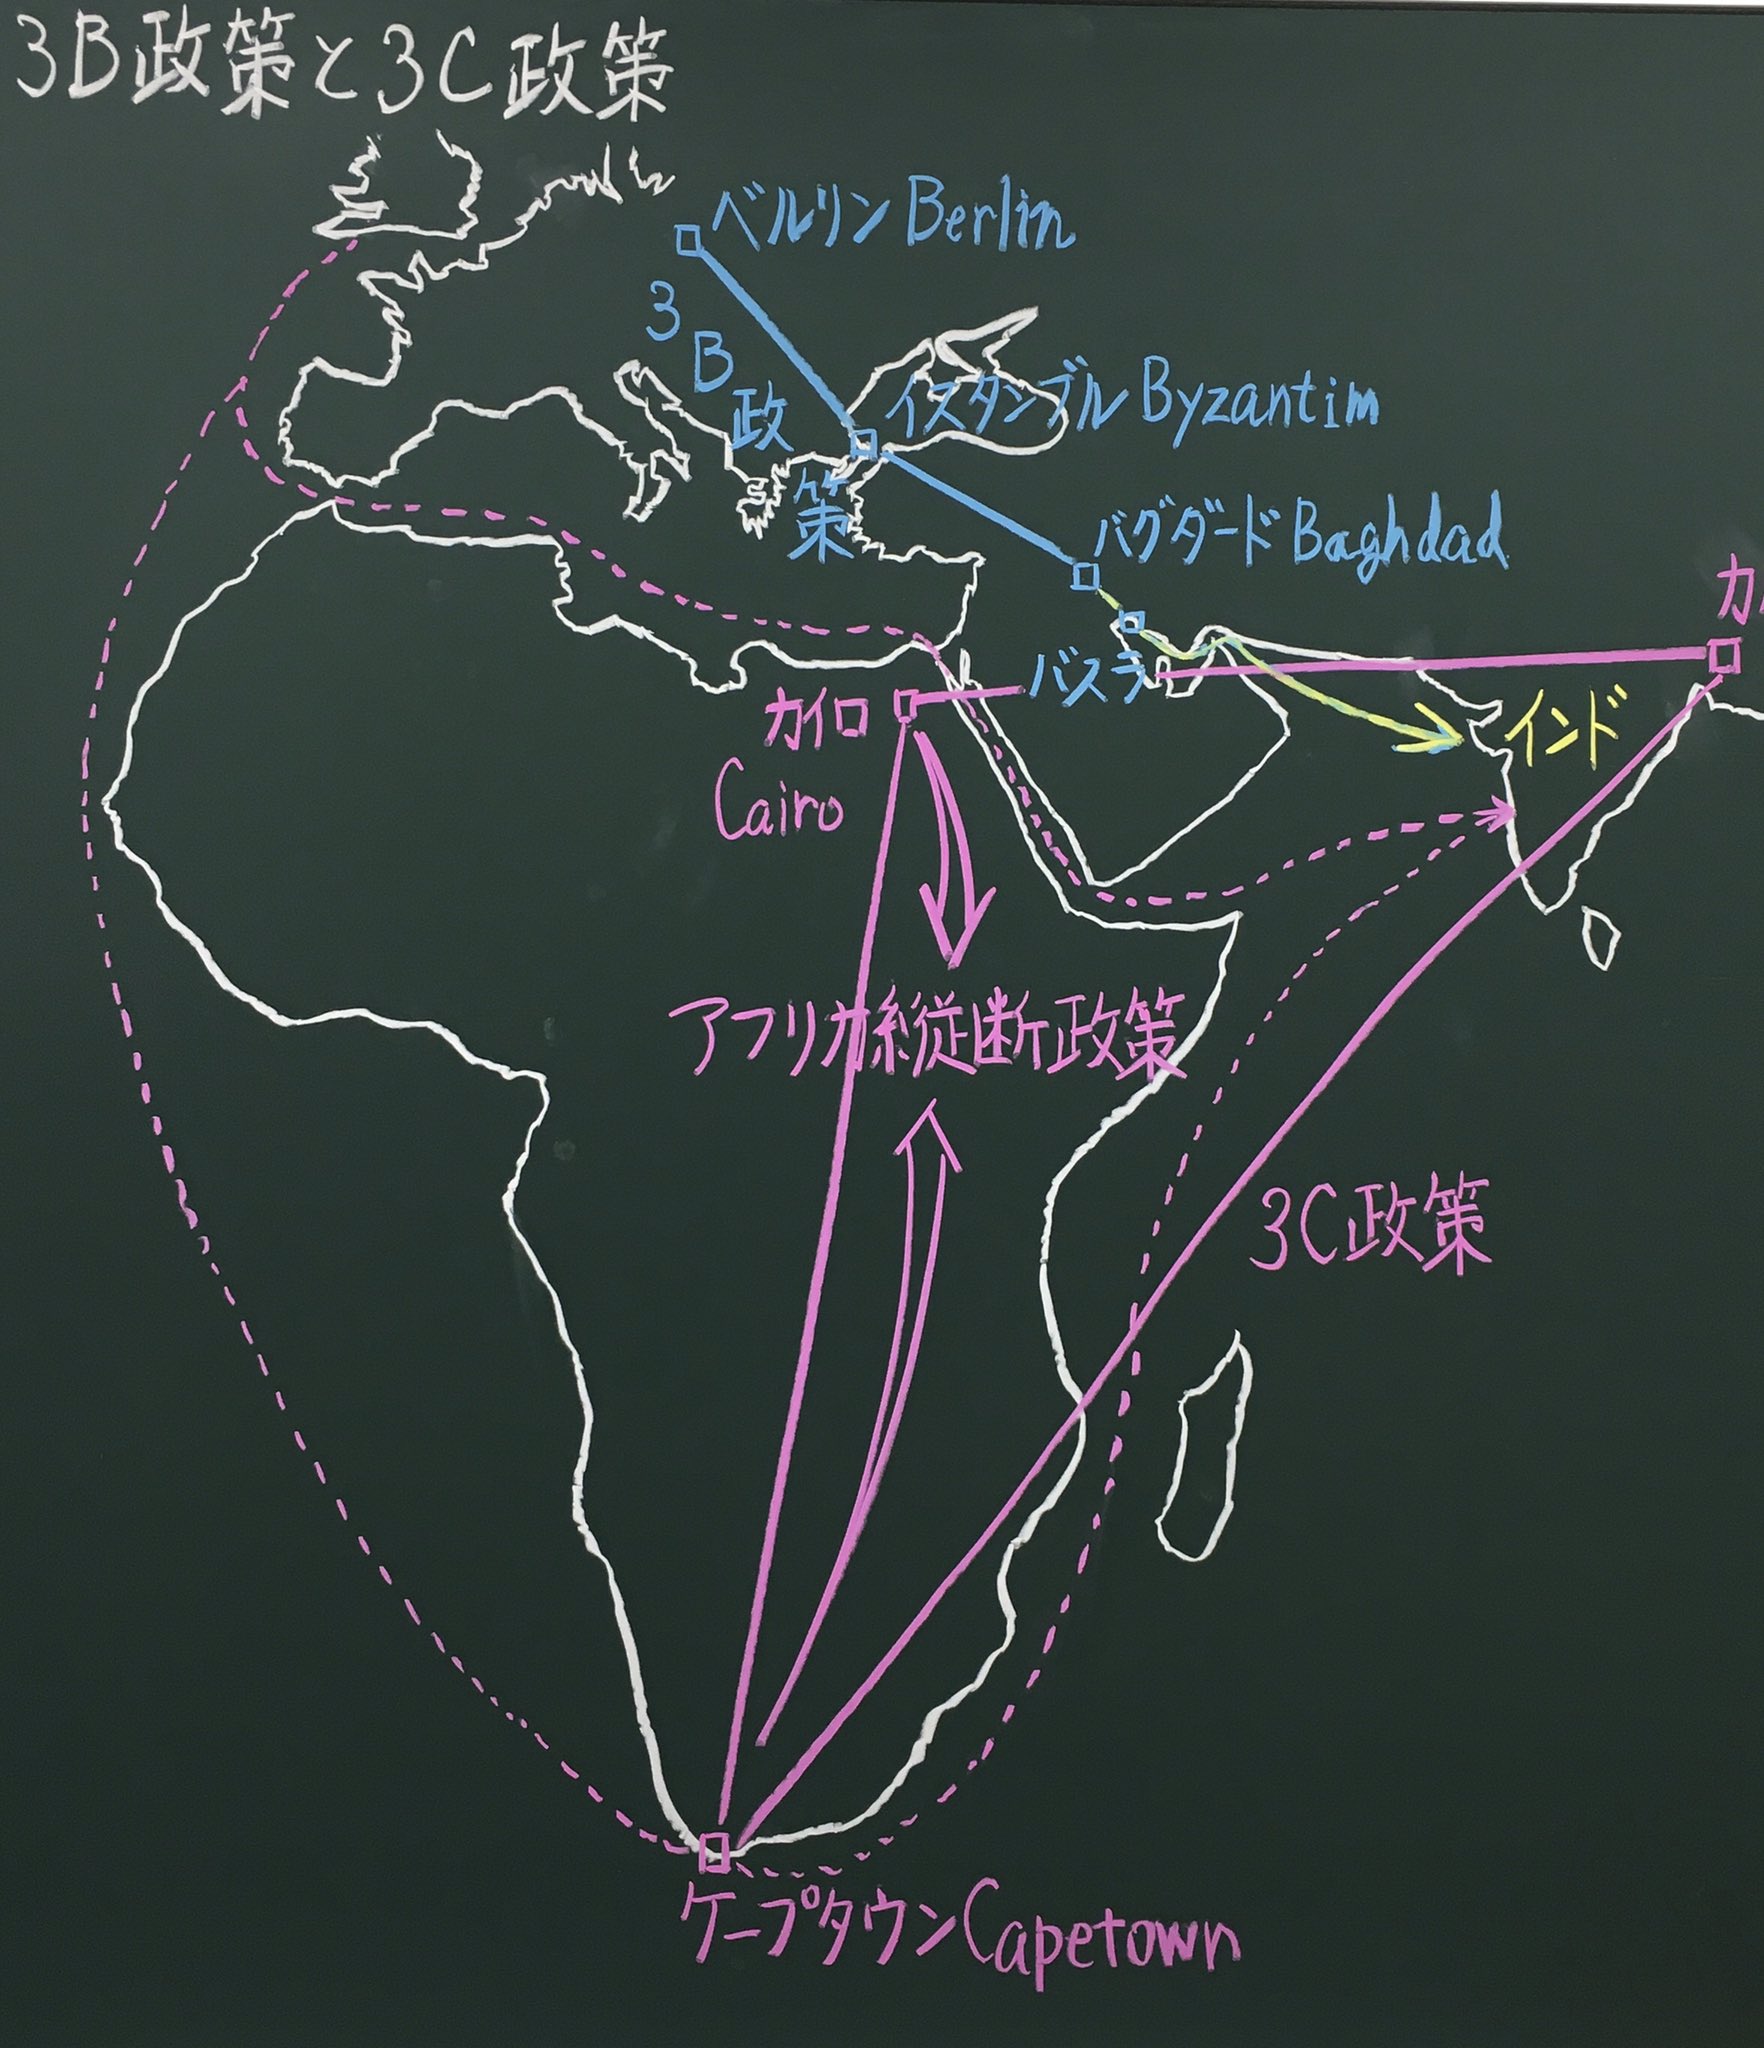 3B政策と3C政策
ベルリンBerlin
3B政策
イスタンブルByzantim
バグダードBaghdad
バスラ
カイロ
Cairo
インド
アフリカ縦断政策
3C政策
ケープタウンCapetown